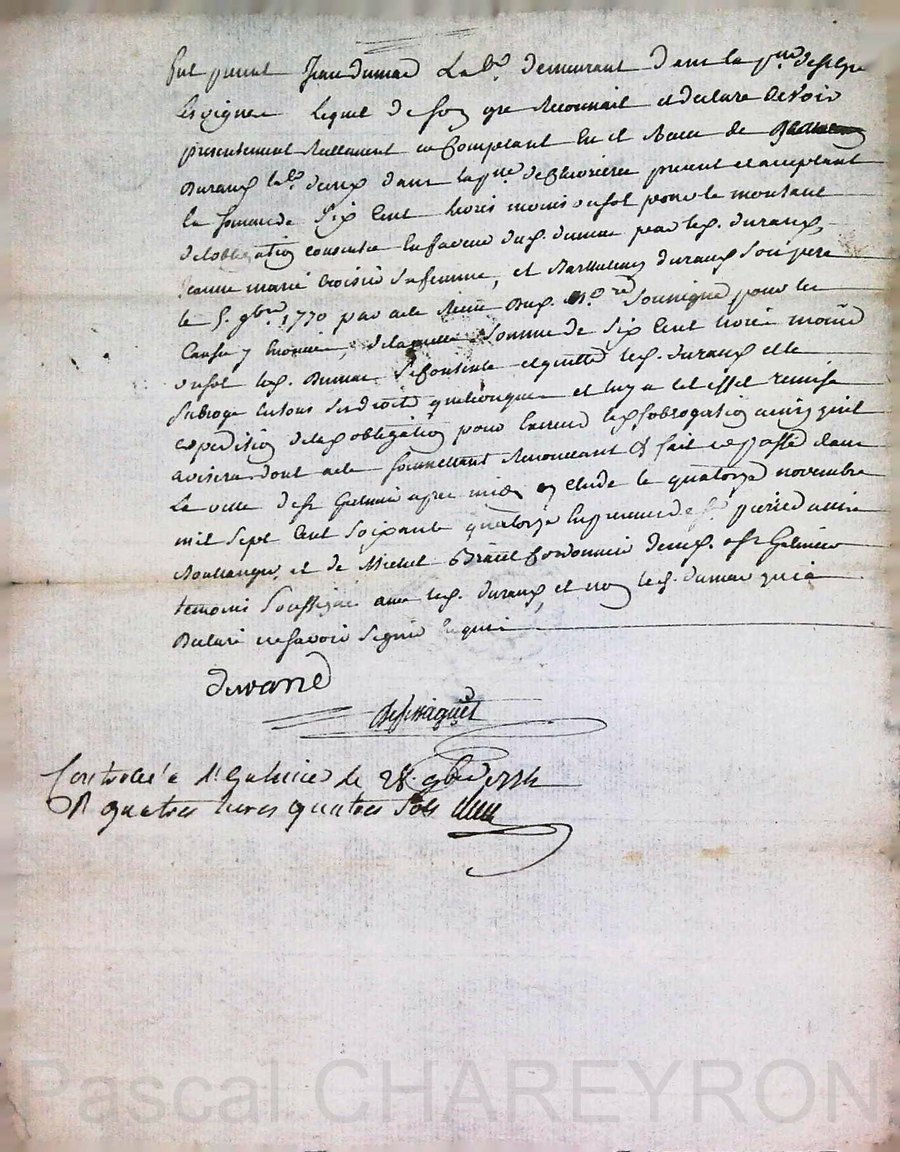 fut present Jean dumas Lab.r demeurant dans la p.sse de
Lesvignes lequel de son gré Reconnait et declare avoir
presentement Reellement et Comptant Eu et Receu de
Durand lab.r dem.t dans la p.sse de present et acceptant
la somme de Six Cent livres moins un sol pour le montant
de lobligation consentie En faveur dud. dumas par led. durand,
jeanne marie sa femme, et Barthelemy durand son pere
le 5. 9bre 1770 par acte Receu No.re soussigné pour les
Causes y Enoncées, de laquelle somme de Six Cent livres moins
un sol led. Dumas se Contente et quitte led. durand et le
subroge En tous ses droits quelconques et luy a a cet effet remise
expedition de lad. obligation pour Exercer lad. subrogation ainsy quil
avisera dont acte soumettant Renonceant & fait et passé dans
La ville de S.t Galmier apres midy Etude le quatorze novembre
mil sept Cent Soixante quatorze En presence de S.r pierre
Boullanger, et de Michel Cordonnier dem.t a S.t Galmier
temoins Soussignés avec led. durand, et non led. dumas qui a
Declaré ne savoir signer Enquis
durand
Controllé a S.t Galmier le 28. 9bre 1774
R quatres livres quatres sols
Pascal CHAREYRON